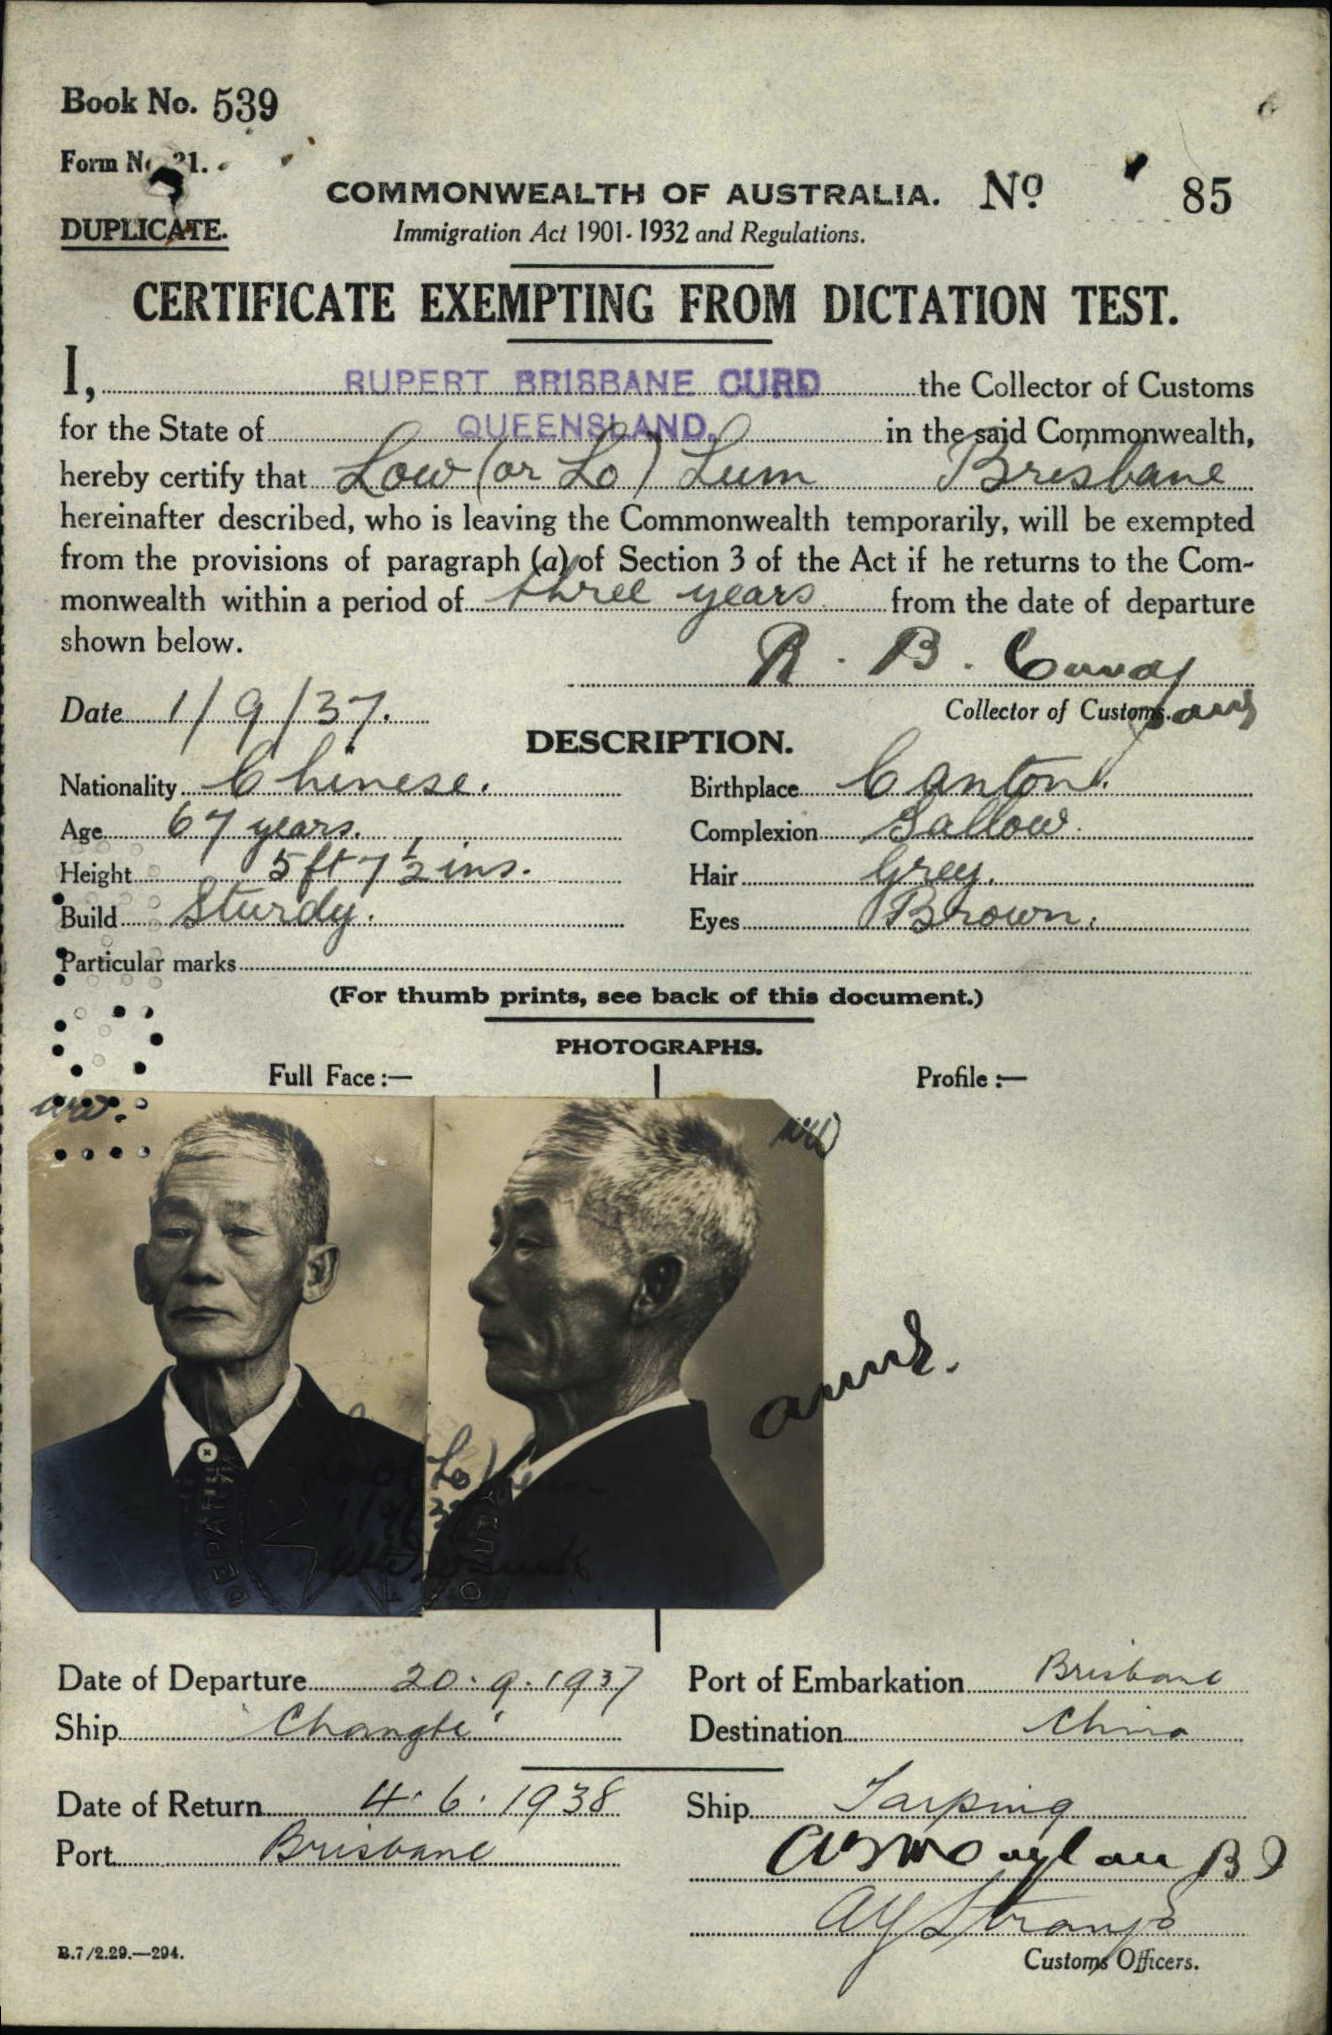 Book No. 539
Form No. 21.
DUPLICATE.
COMMONWEALTH OF AUSTRALIA. No 85
Immigration Act 1901-1932 and Regulations.
CERTIFICATE EXEMPTING FROM DICTATION TEST.
I, RUPERT BRISBANE CURD the Collector of Customs
for the State of QUEENSLAND. in the said Commonwealth,
hereby certify that Low (or Lo) Lum Brisbane
hereinafter described, who is leaving the Commonwealth temporarily, will be exempted
from the provisions of paragraph (a) of Section 3 of the Act if he returns to the Com-
monwealth within a period of three years from the date of departure
shown below.
R. B. Curd
Date 1/9/37. Collector of Customs.
DESCRIPTION.
Nationality Chinese. Birthplace Canton.
Age 67 years. Complexion Sallow.
Height 5 ft 7 1/2 ins. Hair Grey.
Build Sturdy. Eyes Brown.
Particular marks
(For thumb prints, see back of this document.)
PHOTOGRAPHS.
Full Face :— Profile :—
Date of Departure 20.9.1937 Port of Embarkation Brisbane
Ship "Changte" Destination China
Date of Return 4.6.1938 Ship Taiping
Port Brisbane
B.7/2.29.—294. Customs Officers.